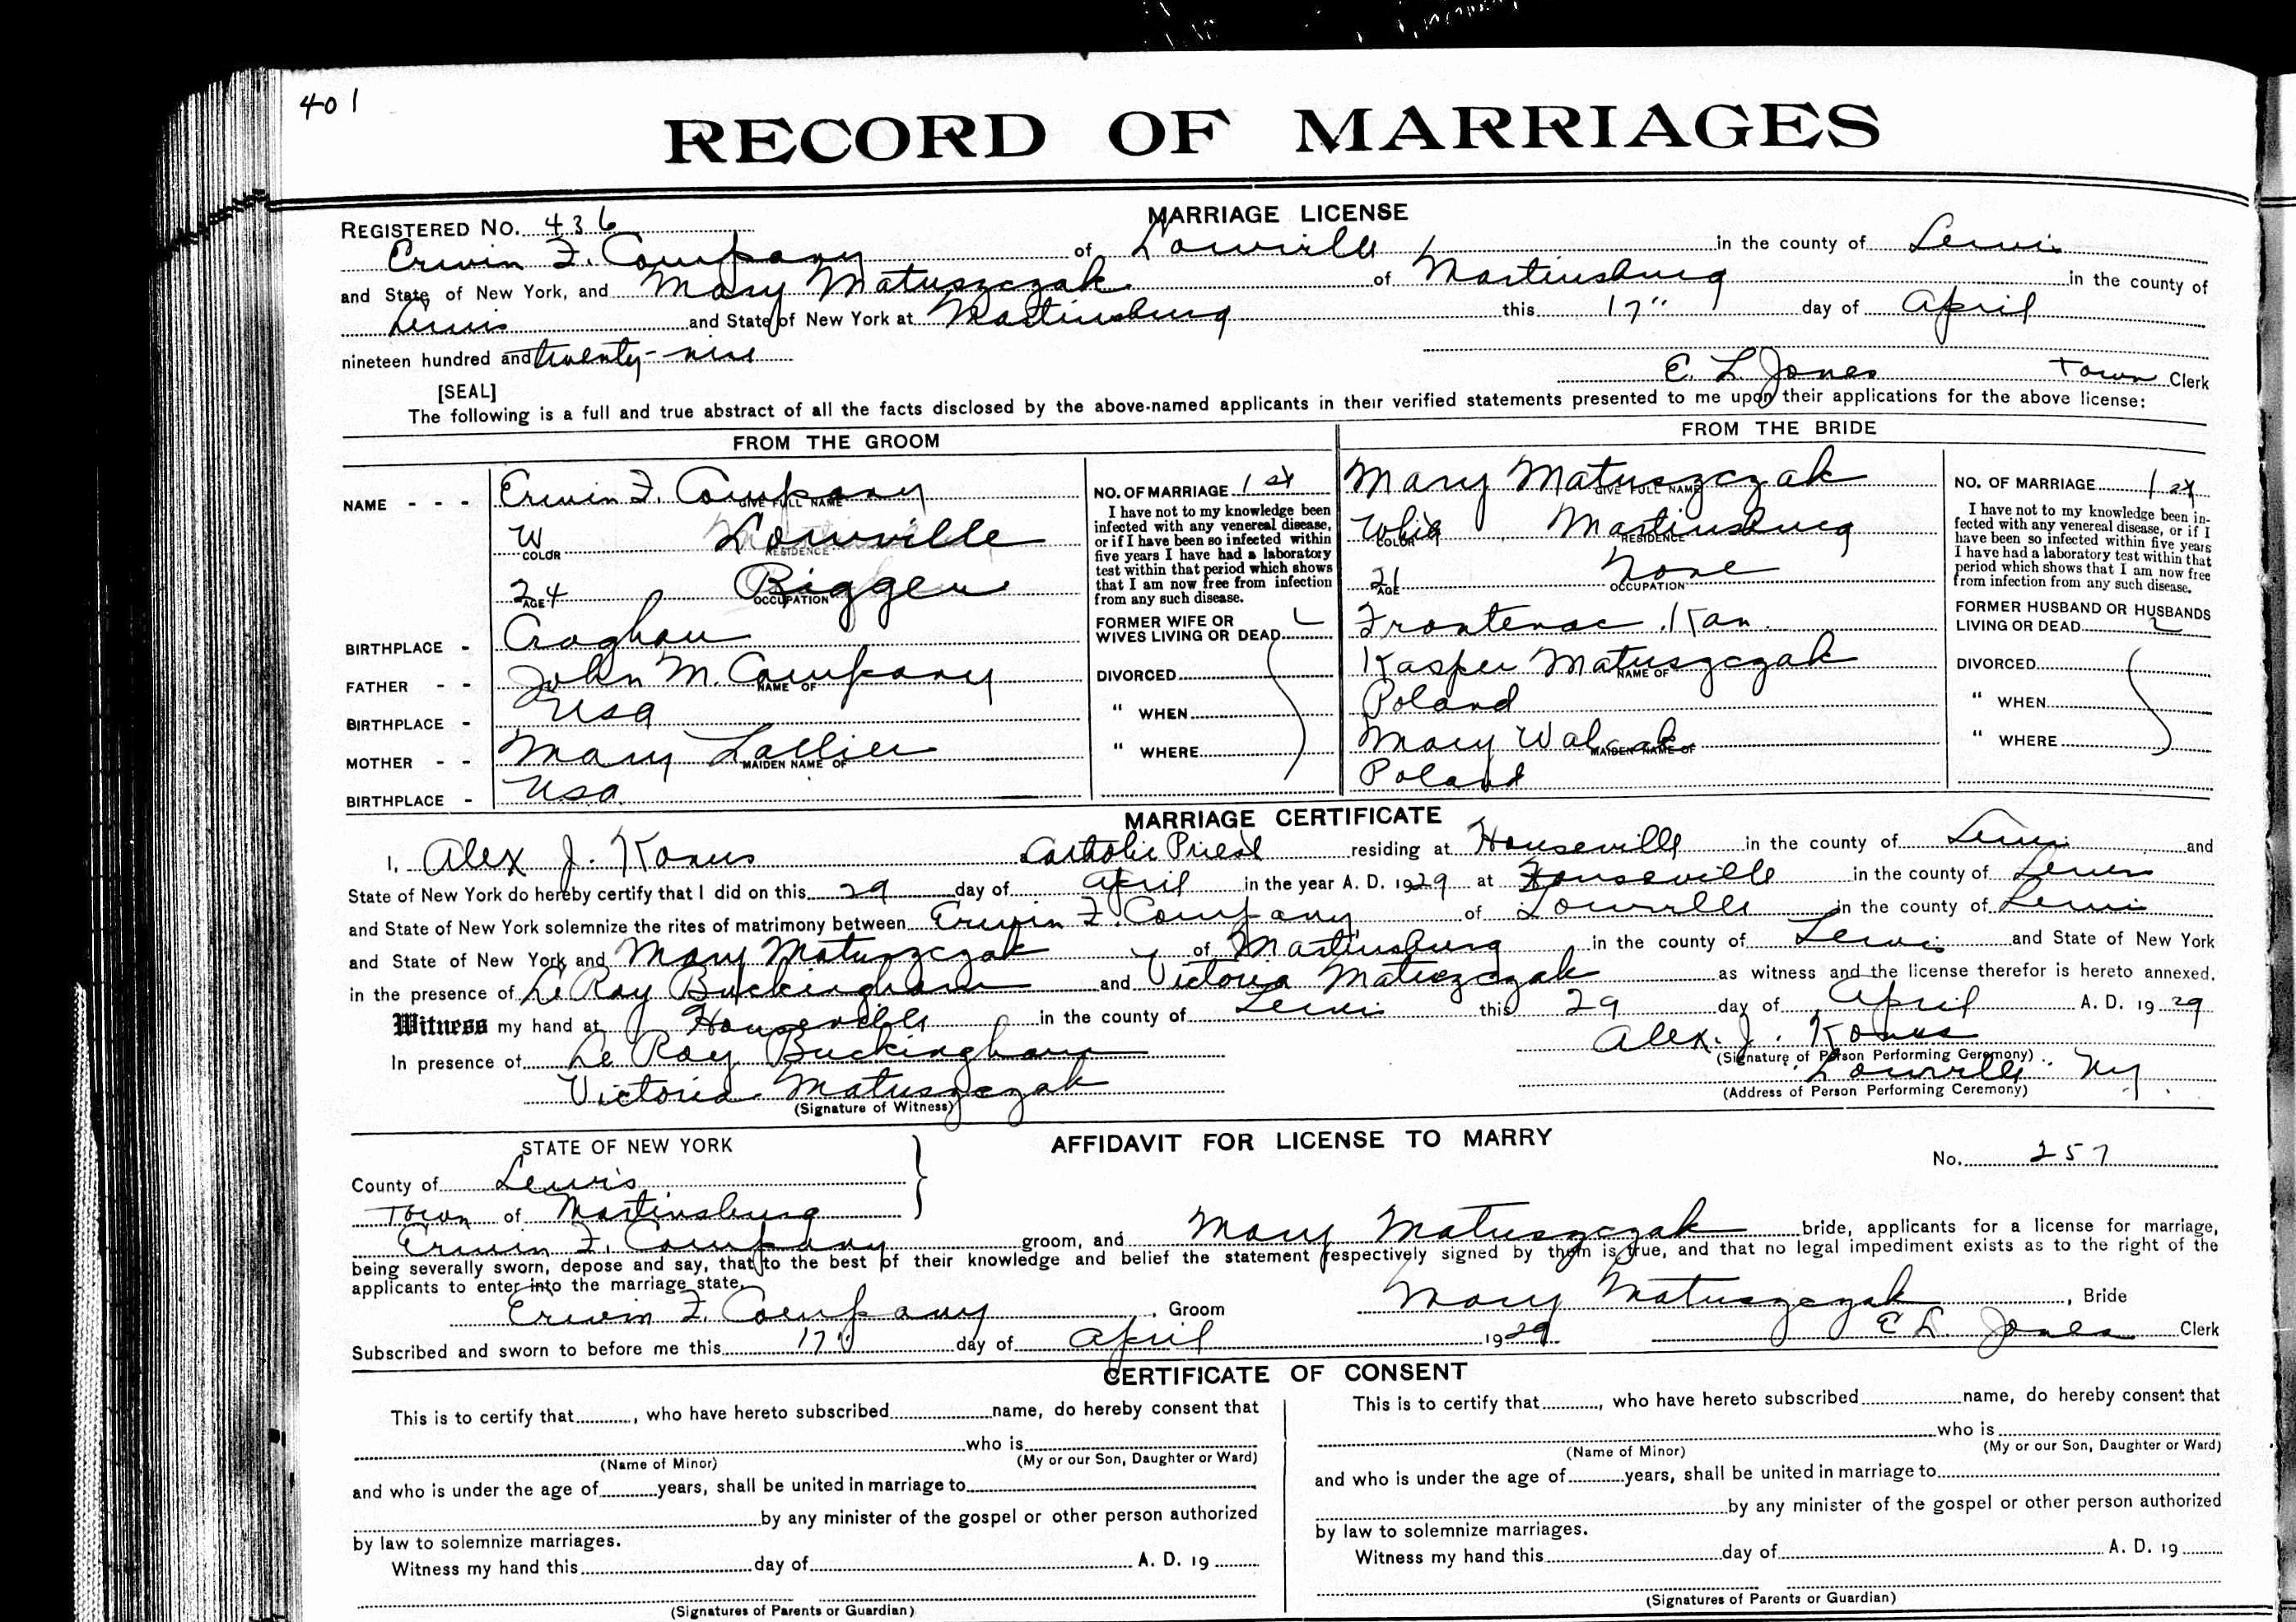 401
RECORD OF MARRIAGES
REGISTERED NO. 436
MARRIAGE LICENSE
Erwin F. Company of Lowville in the county of Lewis
and State of New York, and Mary Matuszczak of Martinsburg in the county of
Lewis and State of New York at Martinsburg this 17" day of April
nineteen hundred and twenty-nine
E. L. Jones Town Clerk
[SEAL]
The following is a full and true abstract of all the facts disclosed by the above-named applicants in their verified statements presented to me upon their applications for the above license:
FROM THE GROOM
NAME - - - Erwin F. Company
GIVE FULL NAME
W Lowville
COLOR RESIDENCE
24 Bigger
AGE OCCUPATION
BIRTHPLACE - Croghan
FATHER - - John M. Company
NAME OF
BIRTHPLACE - Usa
MOTHER - - Mary Lallier
MAIDEN NAME OF
BIRTHPLACE - Usa
NO. OF MARRIAGE 1st
I have not to my knowledge been
infected with any venereal disease,
or if I have been so infected within
five years I have had a laboratory
test within that period which shows
that I am now free from infection
from any such disease.
FORMER WIFE OR
WIVES LIVING OR DEAD
DIVORCED
" WHEN
" WHERE
FROM THE BRIDE
Mary Matuszczak
GIVE FULL NAME
White Martinsburg
COLOR RESIDENCE
21 None
AGE OCCUPATION
Frontenac, Kan.
Kasper Matuszczak
NAME OF
Poland
Mary Walcak
MAIDEN NAME OF
Poland
NO. OF MARRIAGE 1st
I have not to my knowledge been in-
fected with any venereal disease, or if I
have been so infected within five years
I have had a laboratory test within that
period which shows that I am now free
from infection from any such disease.
FORMER HUSBAND OR HUSBANDS
LIVING OR DEAD
DIVORCED
" WHEN
" WHERE
MARRIAGE CERTIFICATE
I, Alex J. Konus Catholic Priest residing at Houseville in the county of Lewis and
State of New York do hereby certify that I did on this 29 day of April in the year A. D. 1929 at Houseville in the county of Lewis
and State of New York solemnize the rites of matrimony between Erwin F. Company of Lowville in the county of Lewis
and State of New York and Mary Matuszczak of Martinsburg in the county of Lewis and State of New York
in the presence of LeRoy Buckingham and Victoria Matuszczak as witness and the license therefor is hereto annexed.
Witness my hand at Houseville in the county of Lewis this 29 day of April A. D. 19 29
In presence of Le Roy Buckingham
Alex. J. Konus
(Signature of Person Performing Ceremony)
Victoria Matuszczak
(Signature of Witness)
Lowville Ny.
(Address of Person Performing Ceremony)
STATE OF NEW YORK
AFFIDAVIT FOR LICENSE TO MARRY
No. 257
County of Lewis
Town of Martinsburg
Erwin F. Company groom, and Mary Matuszczak bride, applicants for a license for marriage,
being severally sworn, depose and say, that to the best of their knowledge and belief the statement respectively signed by them is true, and that no legal impediment exists as to the right of the
applicants to enter into the marriage state.
Erwin F. Company, Groom Mary Matuszczak, Bride
Subscribed and sworn to before me this 17" day of April 1929 E L. Jones Clerk
CERTIFICATE OF CONSENT
This is to certify that, who have hereto subscribed name, do hereby consent that
who is
(Name of Minor) (My or our Son, Daughter or Ward)
and who is under the age of years, shall be united in marriage to
by any minister of the gospel or other person authorized
by law to solemnize marriages.
Witness my hand this day of A. D. 19
(Signatures of Parents or Guardian)
This is to certify that, who have hereto subscribed name, do hereby consent that
who is
(Name of Minor) (My or our Son, Daughter or Ward)
and who is under the age of years, shall be united in marriage to
by any minister of the gospel or other person authorized
by law to solemnize marriages.
Witness my hand this day of A. D. 19
(Signatures of Parents or Guardian)